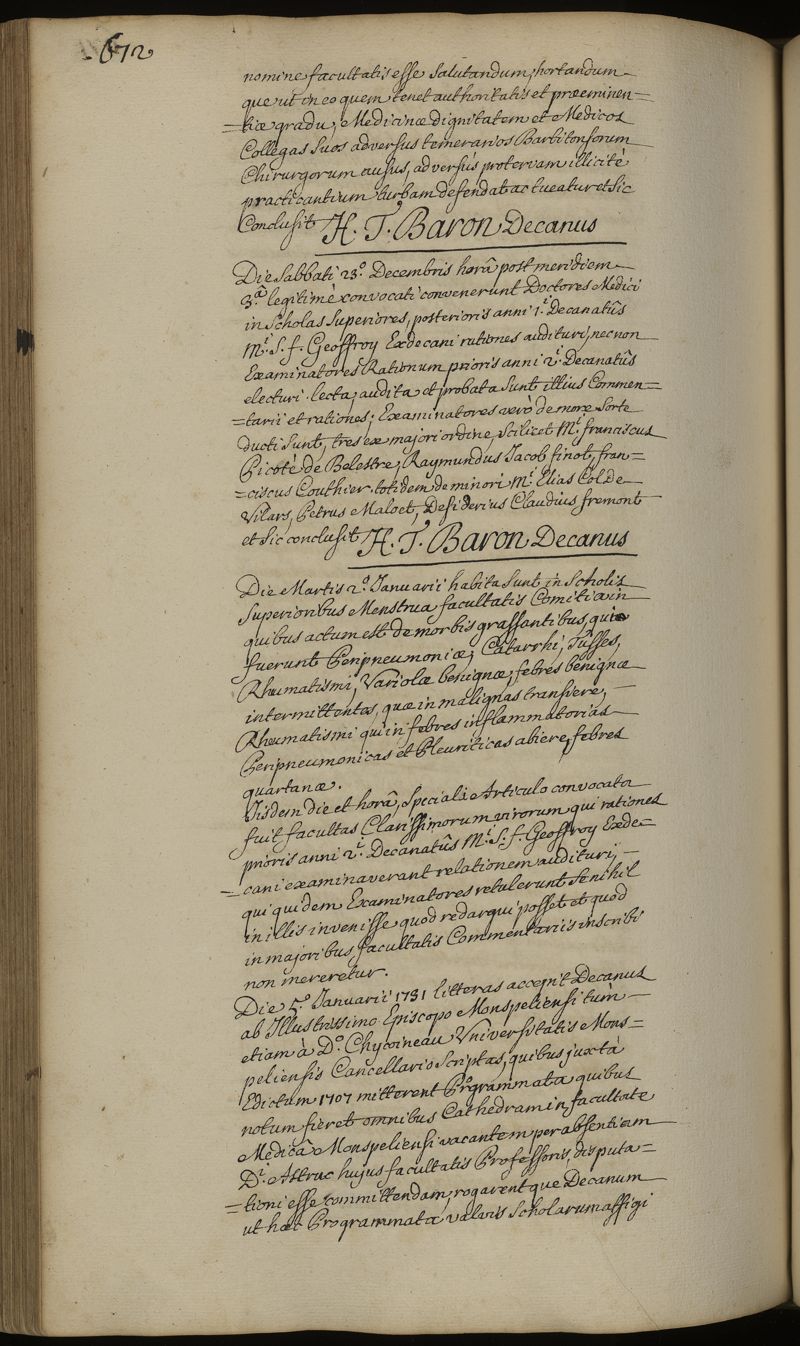 672
nomine facultatis esse Salutandum, hortandum
que ut in eo quem tenet authoritatis et præeminen=
=tiæ gradu, Medicinæ dignitatem et Medicos
Collegas Suos adversus temerarios Barbitonsorum
Chirurgorum ausus, adversus protervam illicitè
practicantium turbam defendat ac tueatur et Sic
Conclusit H. T. Baron Decanus
Die Sabbati 23.° Decembris horâ post meridiem
3.ª legitimè convocati convenerunt Doctores Medici
in Scholas Superiores, posterioris anni 1.i Decanatûs
M.i S. f. Geoffroy Exdecani rationes audituri, necnon
Examinatores Rationum prioris anni 2.i Decanatûs
electuri. lecta, audita et probata Sunt illius Commen=
=tarii et rationes; Examinatores verò de more Sorte
ducti Sunt, tres ex majori ordine, Scilicet M.i franciscus
Picoté de Belestre, Raymundus Jacob finot, fran=
=ciscus Couthier. totidem de minori M.i Elias Col de
Vilars, Petrus Maloet, Desiderius Claudius fremont
et Sic conclusit H. T. Baron Decanus
Die Martis 2.° Januarii habita Sunt in Scholis
Superioribus Menstrua facultatis Comitia in
quibus actum est de morbis grassantibus, qui
fuerunt Peripneumoniæ, Catarrhi, Tusses,
Rheumatismi, Variolæ benignæ, febres benignæ
intermittentes, quæ in malignas transiere,
Rheumatismi qui in febres inflammatorias
Peripneumonicas et Pleuriticas abiere, febres
quartanæ.
Iisdem die et horâ, Speciali Articulo convocata
fuit facultas Clarissimorum virorum qui rationes
prioris anni 2.i Decanatûs M.i S. f. Geoffroy Exde=
=cani examinaverant relationem audituri,
qui quidem Examinatores retulerunt Se nihil
in illis invenisse quod redargui posset et quod
in majoribus facultatis Commentariis inscribi
non mereretur.
Die 5.° Januarii 1731 litteras accepit Decanus
ab Illustrissimo Episcopo Monspeliensi tùm
etiam à D.° Chycoineau Universitatis Mons=
peliensis Cancellario Scriptas, quibus juxtà
Edictum 1707 mitterent Programmata quibus
notum fieret omnibus Cathedram in facultate
Medicâ Monspeliensi vacantem per absentiam
D.i Astruc hujus facultatis Professoris, disputa=
=tioni esse committendam, rogarentque Decanum
ut hæc Programmata valvis Scholarum affigi